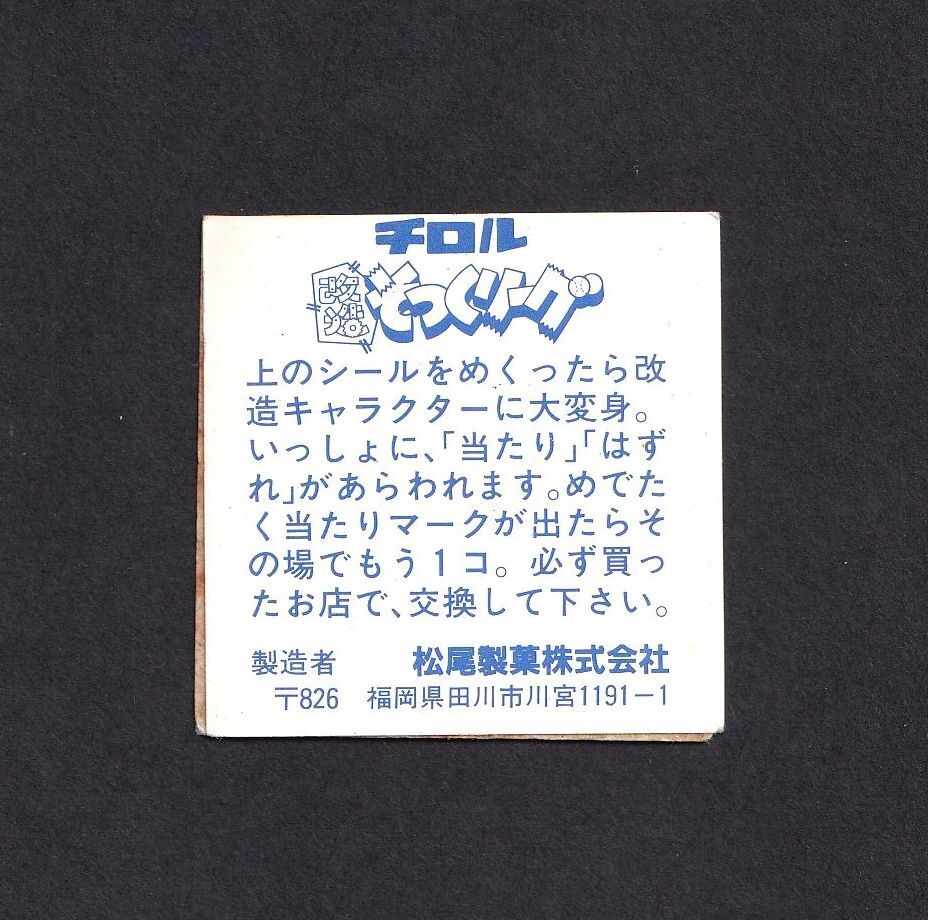 チロル
改造 そっくリーグ
上のシールをめくったら改
造キャラクターに大変身。
いっしょに、「当たり」「はず
れ」があらわれます。めでた
く当たりマークが出たらそ
の場でもう1コ。必ず買っ
たお店で、交換して下さい。
製造者 松尾製菓株式会社
〒826 福岡県田川市川宮1191－1